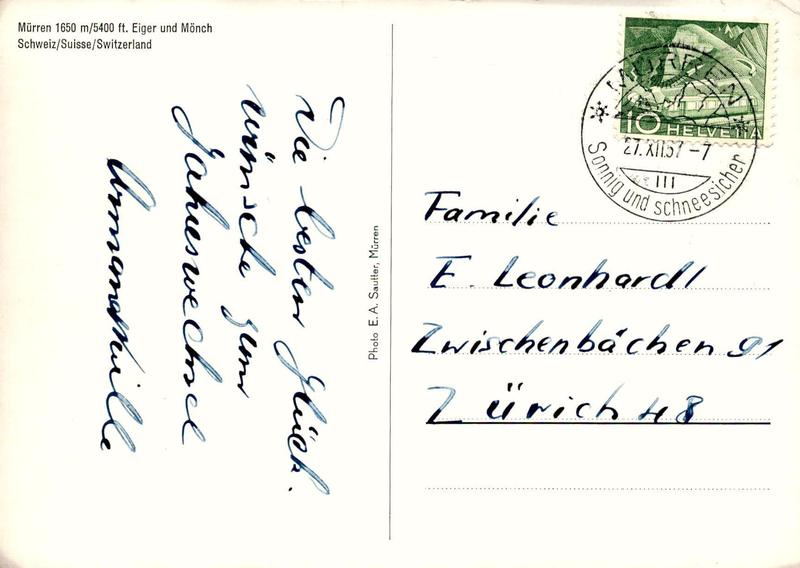 Mürren 1650 m/5400 ft. Eiger und Mönch
Schweiz/Suisse/Switzerland
Die besten Glück.
wünsche zum
Jahreswechsel
Photo E. A. Sautter, Mürren
10 HELVETIA
MÜRREN
27.XII.57-7
III
Sonnig und schneesicher
Familie
E. Leonhardt
Zwischenbächen 91
Zürich 48